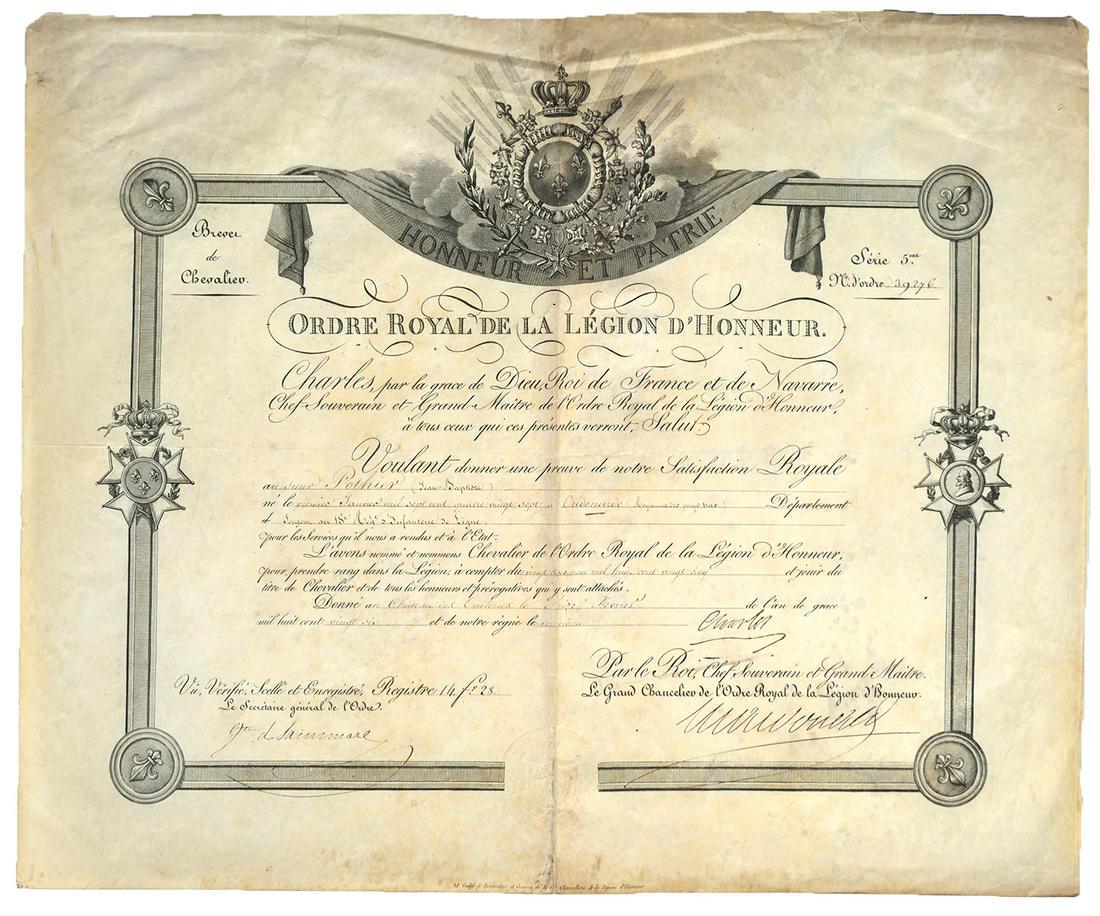 HONNEUR ET PATRIE
Brevet
de
Chevalier.
Série 5.me
N.o d'ordre 39276
ORDRE ROYAL DE LA LÉGION D'HONNEUR.
Charles, par la grace de Dieu, Roi de France et de Navarre,
Chef-Souverain et Grand-Maître de l'Ordre Royal de la Légion d'Honneur,
à tous ceux qui ces présentes verront, Salut.
Voulant donner une preuve de notre Satisfaction Royale
au sieur Pothier (Jean-Baptiste)
né le premier Janvier mil sept cent quatre vingt sept à Oudenarde (Royaume des pays bas) Département
et Sergent au 18e Régt d'Infanterie de Ligne.
pour les Services qu'il nous a rendus et à l'Etat.
L'avons nommé et nommons Chevalier de l'Ordre Royal de la Légion d'Honneur,
pour prendre rang dans la Légion, à compter du mil huit cent vingt cinq et jouir du
titre de Chevalier et de tous les honneurs et prérogatives qui y sont attachés.
Donné au Château des Tuileries le Février de l'an de grace
mil huit cent vingt six et de notre règne le
Charles
Par le Roi, Chef-Souverain et Grand-Maître.
Vû, Vérifié, Scellé et Enregistré, Registre 14, f.o 28
Le Grand Chancelier de l'Ordre Royal de la Légion d'Honneur.
Le Secrétaire général de l'Ordre.
de Sainmare
Macdonald
de la Chancellerie de la Légion d'Honneur